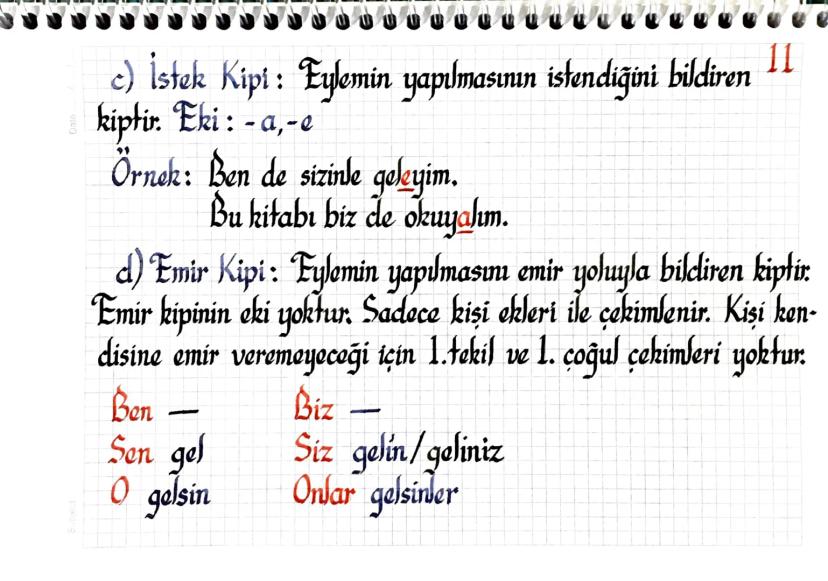 11
c) İstek Kipi: Eylemin yapılmasının istendiğini bildiren
kiptir. Eki: -a,-e
Örnek: Ben de sizinle geleyim.
Bu kitabı biz de okuyalım.
d) Emir Kipi: Eylemin yapılmasını emir yoluyla bildiren kiptir.
Emir kipinin eki yoktur. Sadece kişi ekleri ile çekimlenir. Kişi ken-
disine emir veremeyeceği için 1.tekil ve 1. çoğul çekimleri yoktur.
Ben — Biz —
Sen gel Siz gelin/geliniz
O gelsin Onlar gelsinler